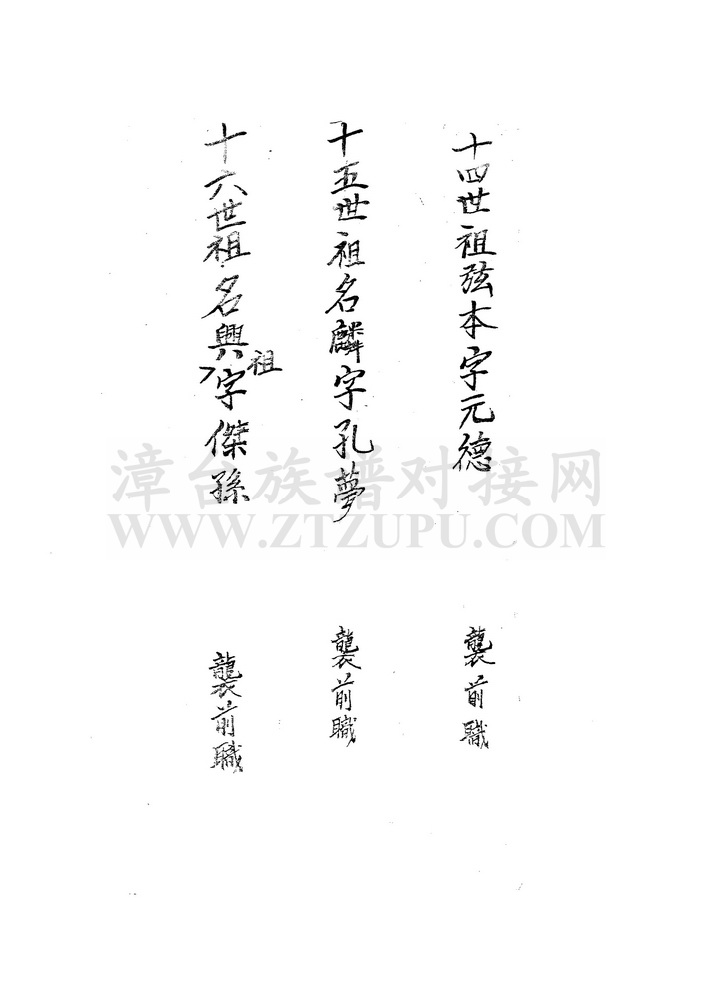 十四世祖弦本字元德
襲前職
十五世祖名麟字孔夢
襲前職
十六世祖名興祖字傑孫
襲前職
漳台族谱对接网
WWW.ZTZUPU.COM